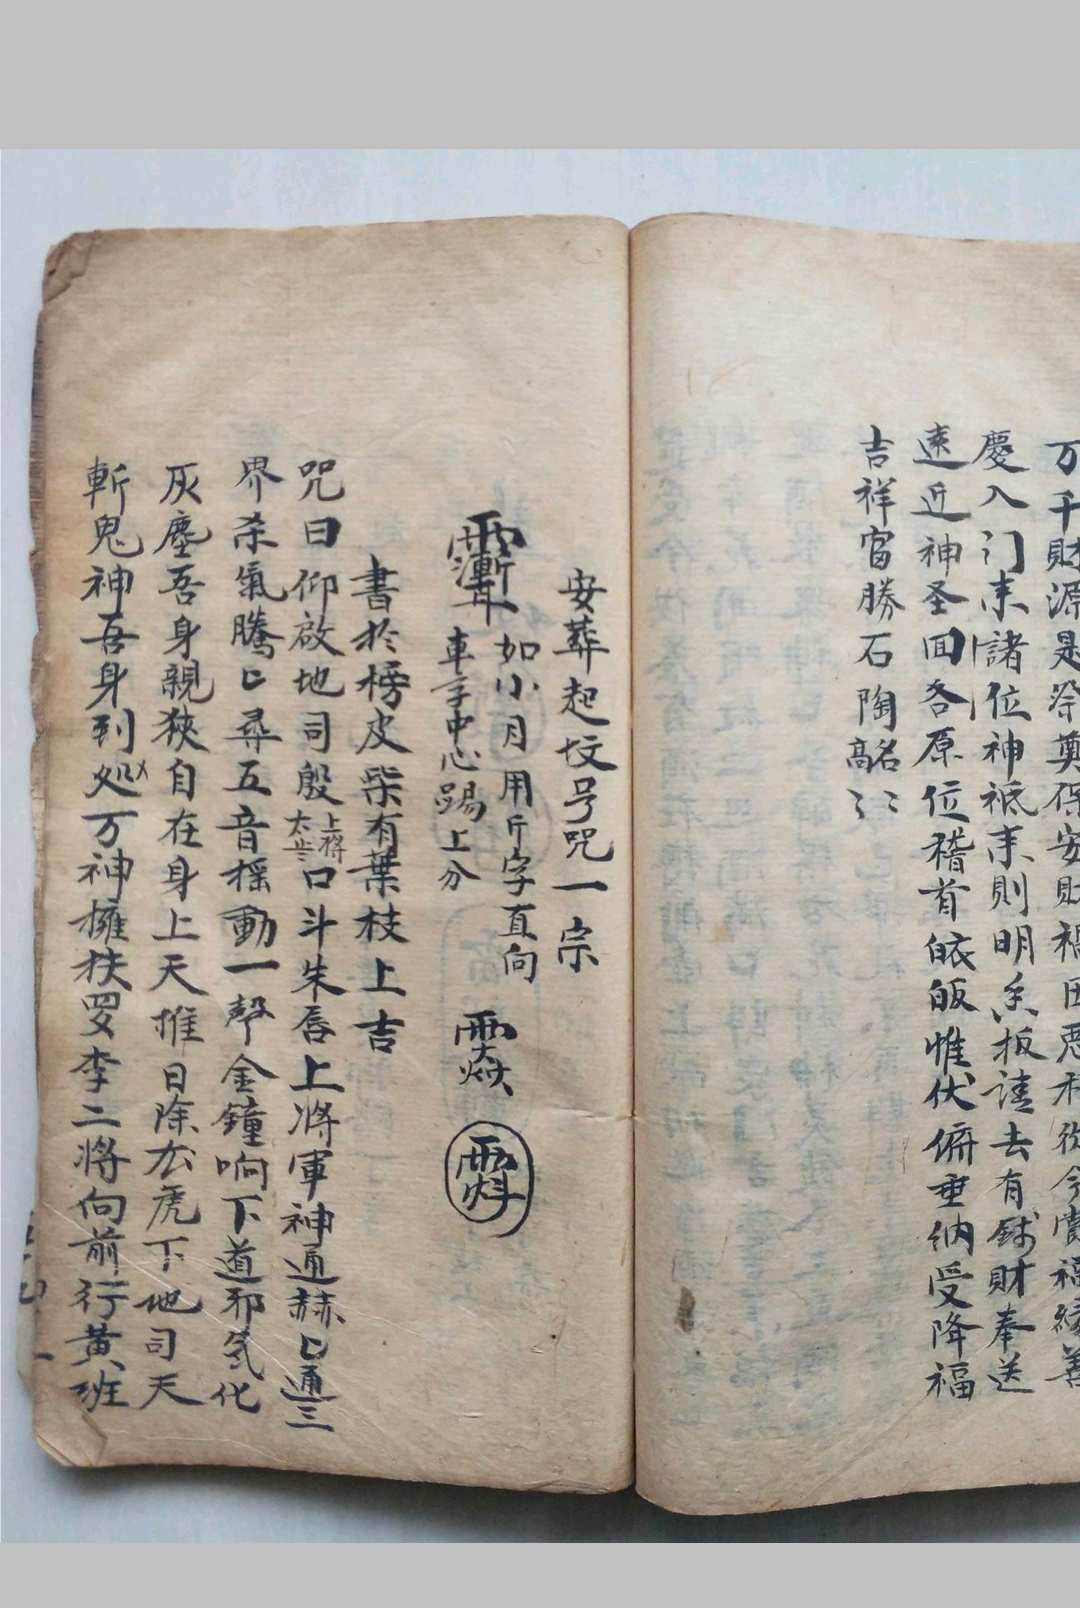 万千財源是祭奠保安財禍田惡利從今賞福緣善
慶入门来諸位神祇来則明香扳請去有錢財奉送
遠近神圣回各原位稽首皈依皈惟伏俯垂納受降福
吉祥富勝石陶名高
安葬起坟号咒一宗
如小月用斤字直向
車字中心踢上分
書於榜皮柴有葉枝上吉
咒曰仰啟地司殷上將太歲口斗朱唇上將軍神通赫匕通三
界杀氣騰匕尋五音摇動一聲金鐘响下道邪氣化
灰塵吾身親狹自在身上天推日除広虎下地司天
斬鬼神吾身到处万神擁扶罗李二將向前行黄班